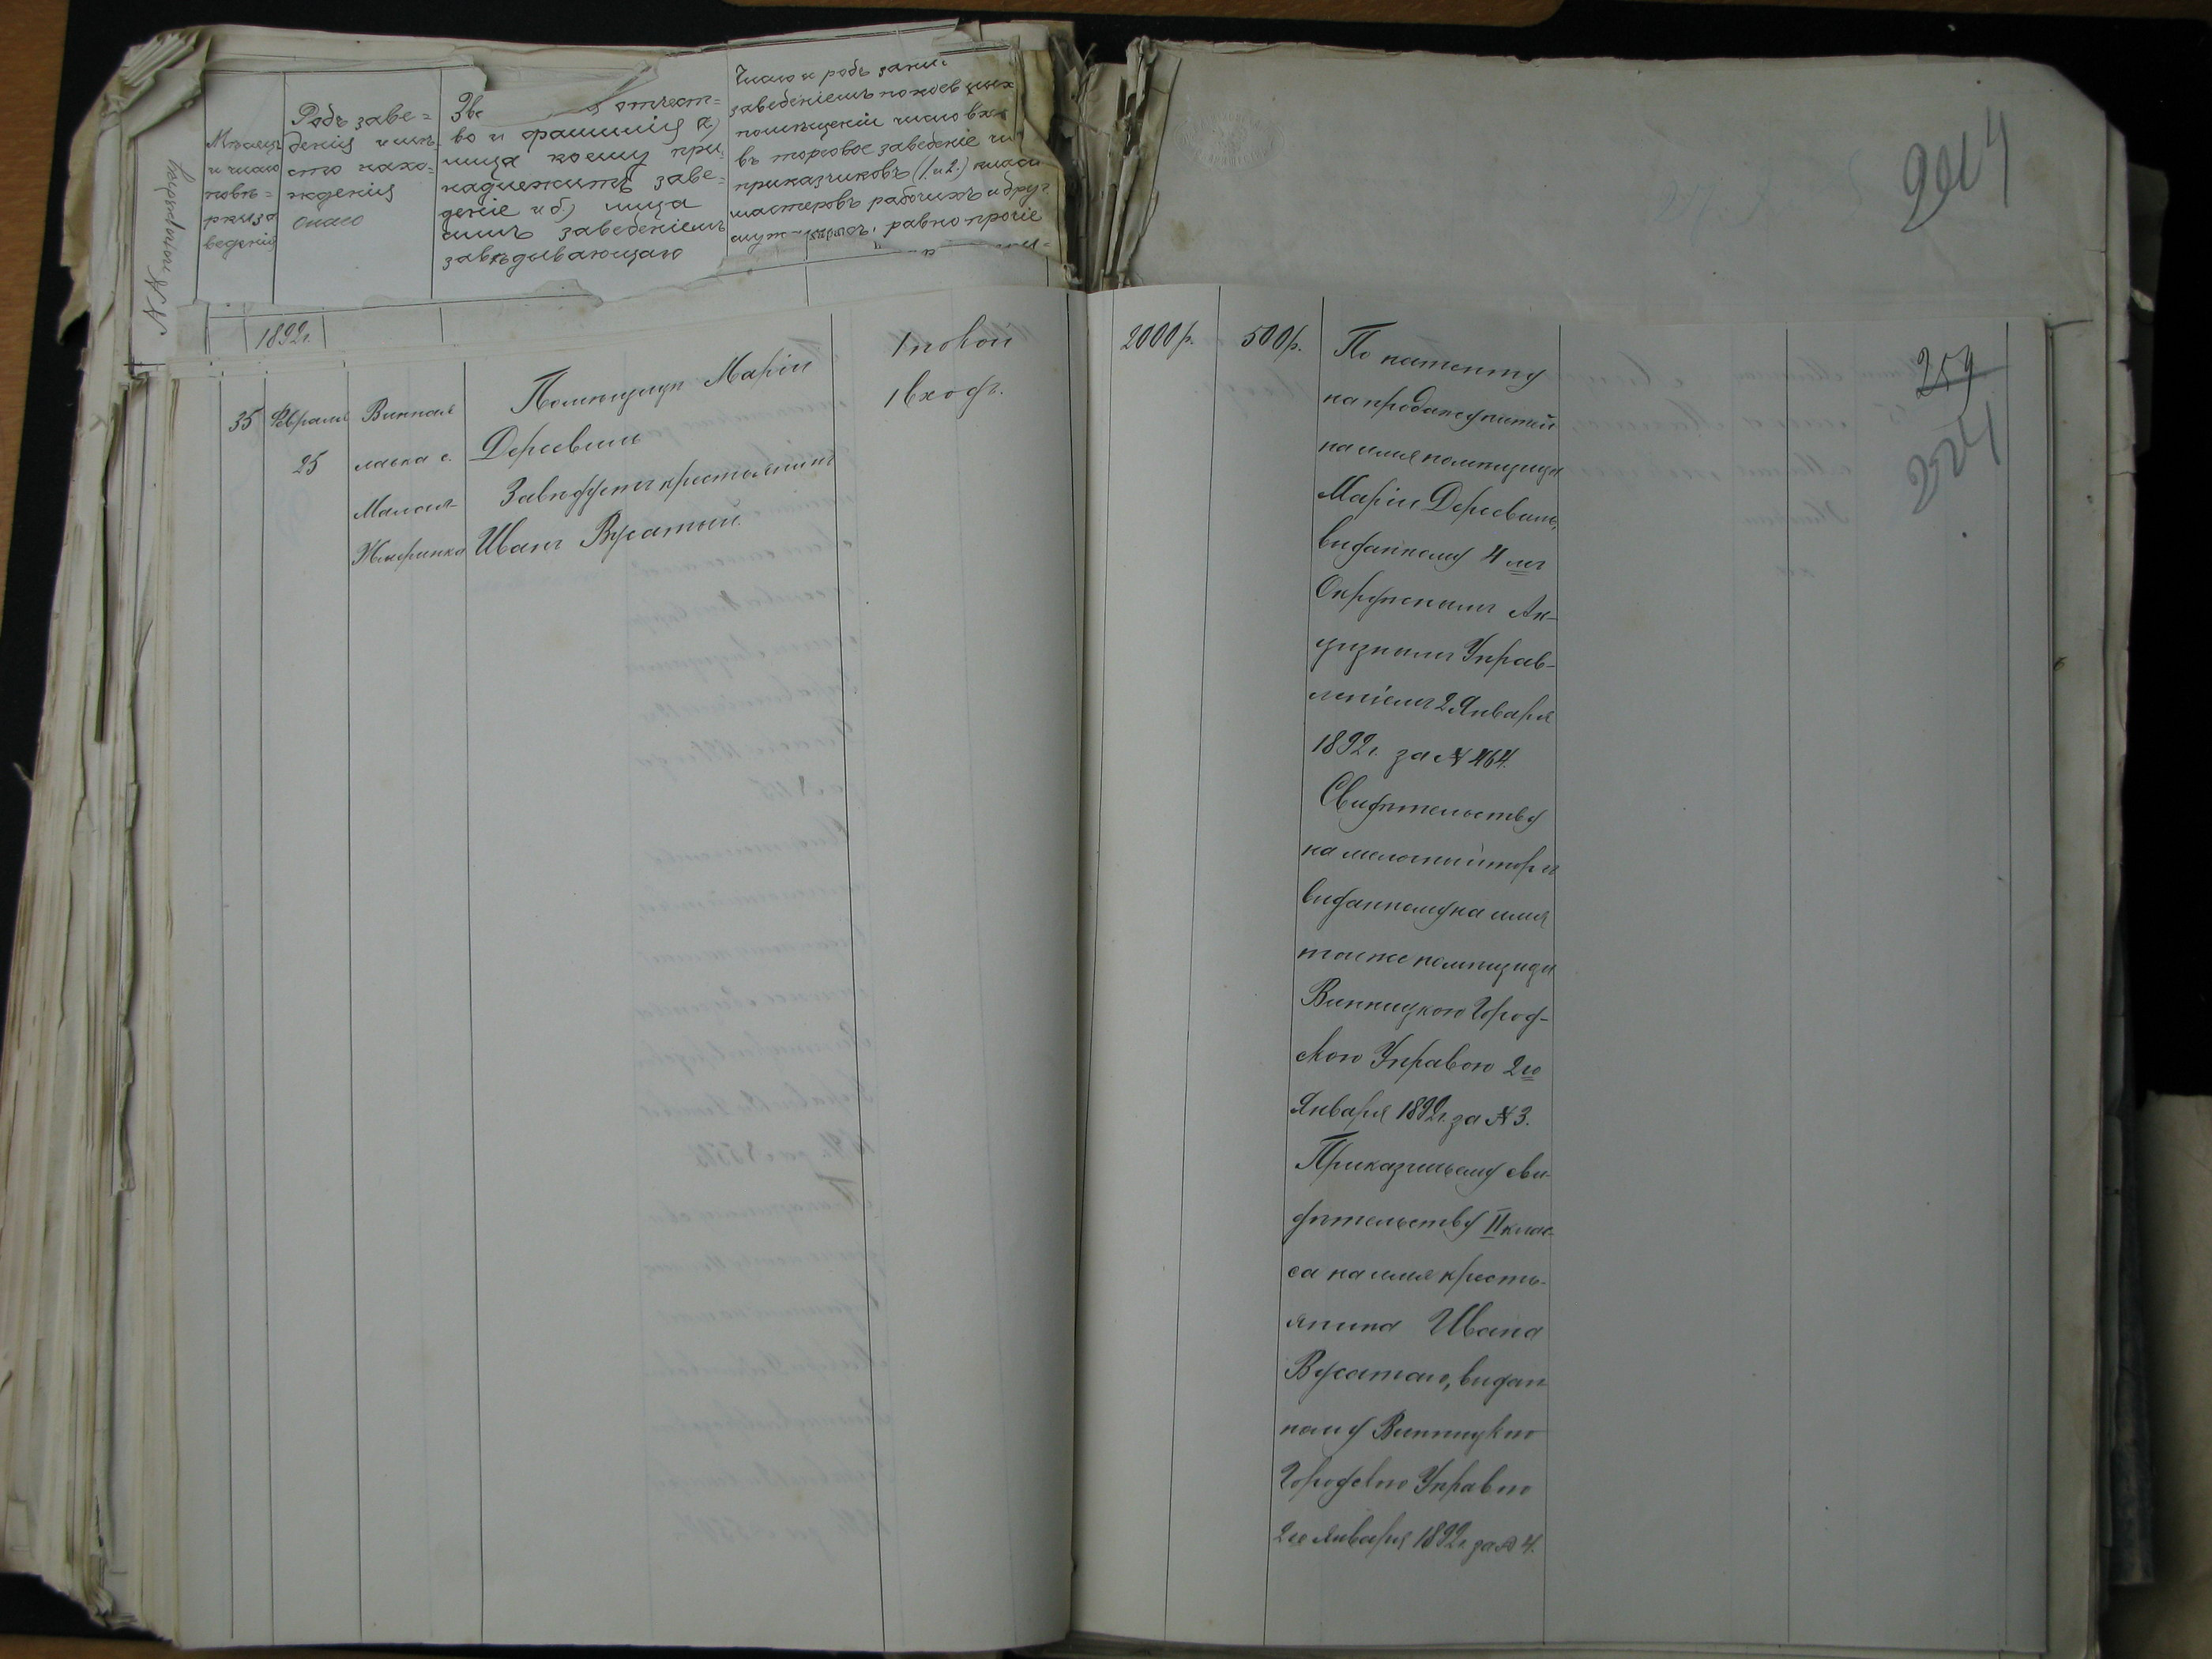 NN по порядку
Мѣсяцъ
и число
повѣ=
рки за
веденія
Родъ заве=
денія и мѣ-
сто нахо=
жденія
онаго
Зва отчест=
во и фамилія а)
лица коему при-
надлежитъ заве=
деніе и б.) лица
симъ заведеніемъ
завѣдывающаго
Число и родъ зани
заведеніемъ покоев
помѣщеній число вхо
въ торговое заведеніе чи
приказчиковъ (1. и 2.) класс
мастеровъ рабочихъ и друг.
равно прочіе
1892г.
35 Февраля
25
Винная
лавка с.
Малая-
Жмеринка
Помѣщицы Маріи
Дерсевиль
Завѣдуетъ крестьянинъ
Иванъ Вусатый.
1 покой
1 входъ.
2000 р.
500 р.
По патенту
на продажу питей
на имя помѣщицы
Маріи Дерсевиль,
выданному 4мъ
Окружнымъ Ак-
цизнымъ Управ-
леніемъ 2 Января
1892г. за № 464.
Свидѣтельству
на мелочный торгъ
выданному на имя
тоей же помѣщицы
Винницкою Город-
скою Управою 2го
Января 1892г. за № 3.
Приказчичьему сви-
дѣтельству II клас-
са на имя кресть-
янина Ивана
Вусатаго, выдан-
ному Винницкою
Городскою Управою
2го Января 1892г. за № 4.
259
224